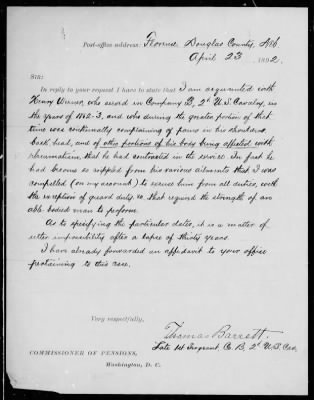 Post-office address: Florence, Douglas County, Neb
April 23, 1892.
SIR:
In reply to your request I have to state that I am acquainted with
Henry, who served in Company B, 2d U.S. Cavalry, in
the years of 1862-3, and who during the greater portion of that
time was continually complaining of pains in his shoulders
back, head, and of other portions of his body being affected with
rheumatism, that he had contracted in the service. In fact he
had become so from his various ailments that I was
compelled (on my account) to excuse him from all duties, with
the exception of guard duty, &c. that required the strength of an
able bodied man to perform.
As to specifying the particular dates, it is a matter of
utter impossibility after a lapse of thirty years.
I have already forwarded an affidavit to your office
pertaining to this case.
Very respectfully,
Thomas Barrett.
Late 1st Sergeant, Co. B, 2d U.S. Cav.
COMMISSIONER OF PENSIONS,
Washington, D. C.